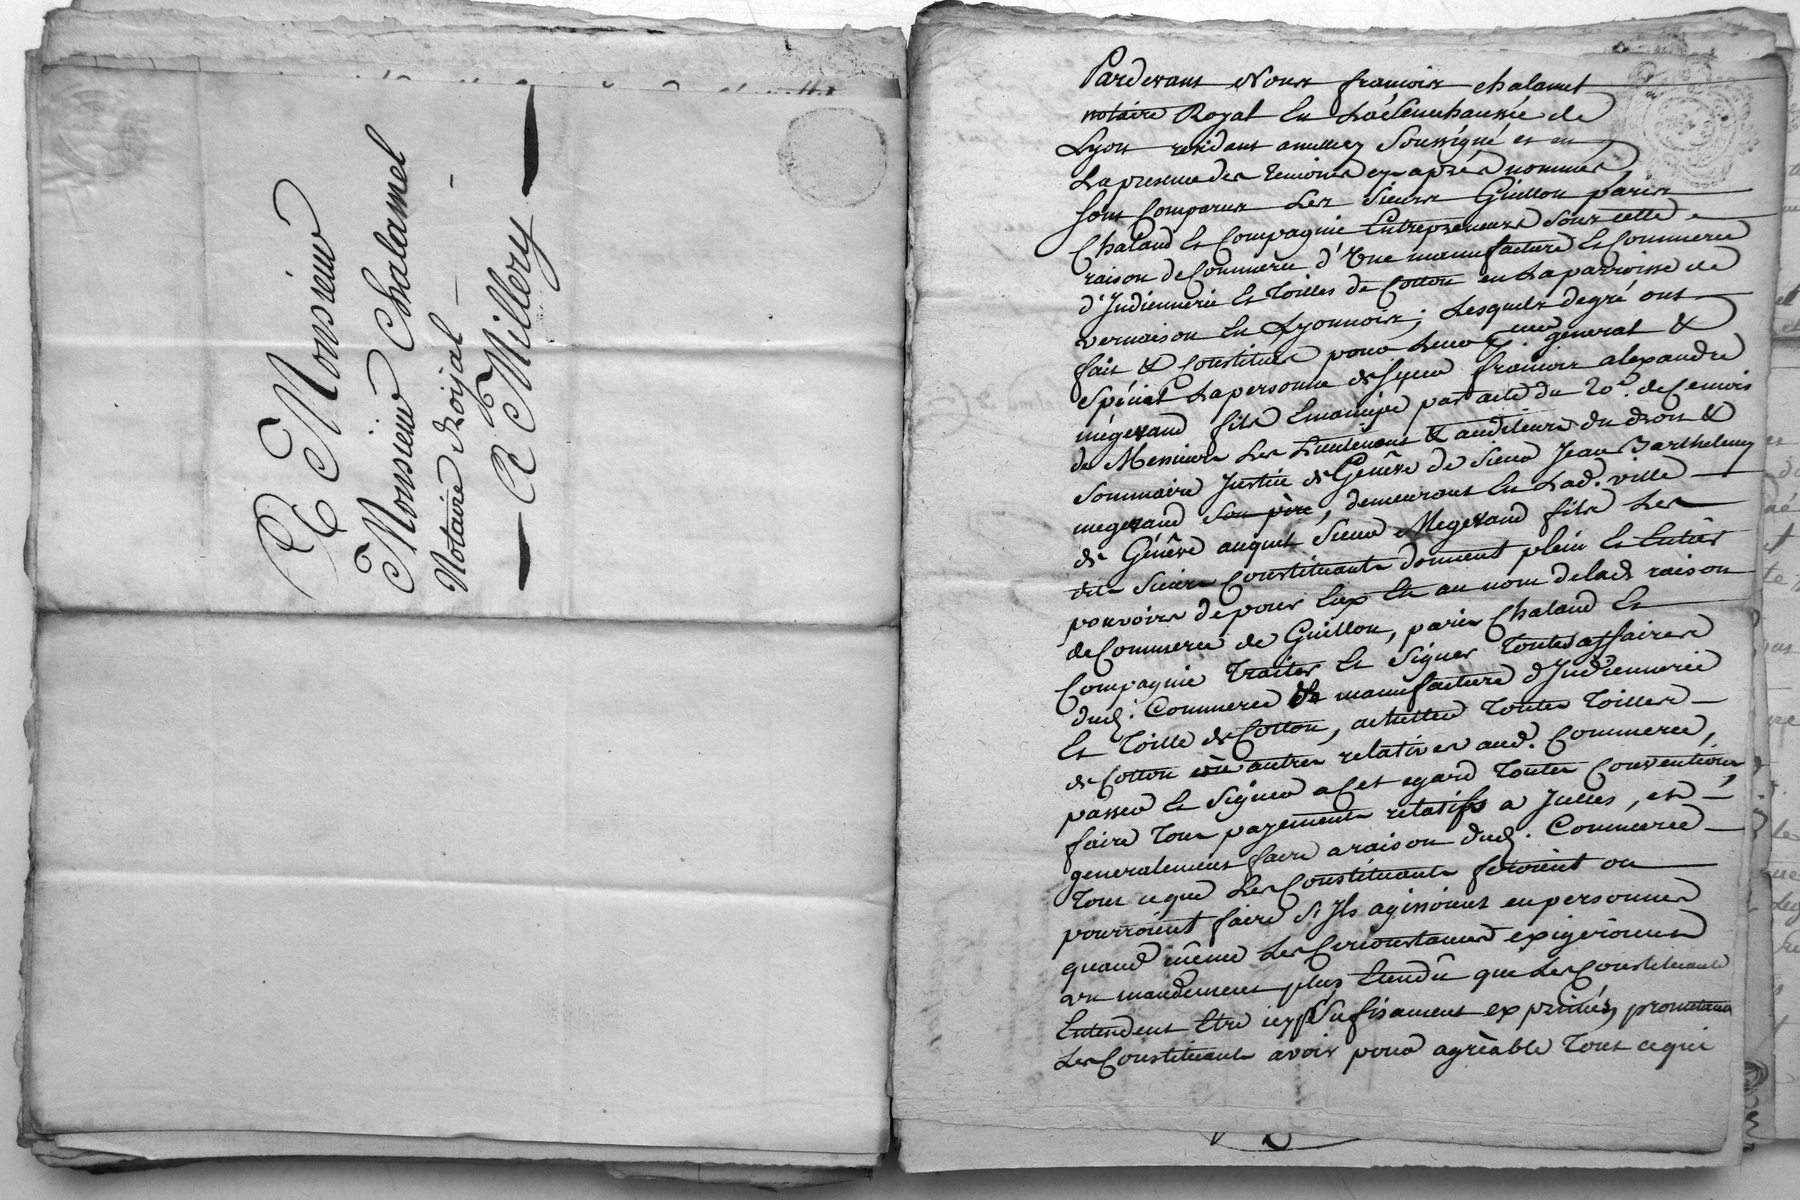 A Monsieur
Monsieur Chalamel
Notaire Roijal
A Millery
Pardevant Nous francois chalamel
notaire Royal En La Sénéchaussée de
Lyon residant amillery Soussigné et en
La presence des temoins cy après nommés
sont Comparus Les Sieurs Guillon paris
Chaland Et Compagnie Entrepreneurs sous cette
raison de Commerce d'Une manufacture Et Commerce
d'Indiennerie Et Toilles de Cotton en La parroisse de
vernaison En Lyonnois; Lesquels degré ont
fait & Constitué pour Leur general &
Spécial La personne de Sieur francois alexandre
mégevand fils Emancipé par acte du 20e. de Ce mois
de Messieurs Les Lieutenant & auditeurs du droit &
Sommaire Justice de Genêve de Sieur Jean Barthelemy
megevand Son père, demeurant En Lad. ville
de Génêve auquel Sieur Megevand fils Les
dits Sieurs Constituants donnent plein Et Entier
pouvoirs de pour Eux Et au nom de lad. raison
de Commerce de Guillon, paris Chaland Et
Compagnie Traiter Et Signer Toutes affaires
dud. Commerce de manufacture d'Indiennerie
Et Toille de Cotton, achetter Toutes Toilles
de Cotton ou autres relatives aud. Commerce,
passer Et Signer a Cet egard Toutes Conventions,
faire Tous payements relatifs a Icelles, et
generalement faire a raison dud. Commerce
Tout ce que Les Constituants feroient ou
pourroient faire S'Ils agissoient en personnes
quand même Les Circonstances exigeroient
un mandement plus Etendû que Les Constituants
Entendent Etre icy Sufisament exprimés, promettant
Les Constituants avoir pour agrèable Tout ce qui